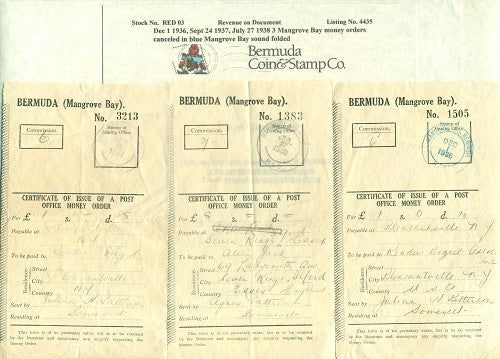 Stock No. RED 03 Revenue on Document Listing No. 4435
Dec 1 1936, Sept 24 1937, July 27 1938 3 Mangrove Bay money orders
canceled in blue Mangrove Bay sound folded
Bermuda
Coin&StampCo.
BERMUDA (Mangrove Bay).
No. 3213
Commission.
6
Stamp of
Issuing Office
CERTIFICATE OF ISSUE OF A POST
OFFICE MONEY ORDER
For £ 1 s. d. 8
Payable at
N
To be paid to
Residence: Street
City Pleasantville
Country N.Y
Sent by Patterson
Residing at Somerset
This form is of no pecuniary value, but is to be retained
by the Remitter and accompany any enquiry respecting the
Money Order.
BERMUDA (Mangrove Bay).
No. 1383
Commission.
Stamp of
Issuing Office
CERTIFICATE OF ISSUE OF A POST
OFFICE MONEY ORDER
For £ 8 s. d.
Payable at
Seven Kings Essex
To be paid to
Residence: Street 69
City Seven Kings Ilford
Country Essex England
Sent by Agnes Patterson
Residing at Somerset
This form is of no pecuniary value, but is to be retained
by the Remitter and accompany any enquiry respecting the
Money Order.
BERMUDA (Mangrove Bay).
No. 1505
Commission.
6
Stamp of
Issuing Office
DEC
1936
CERTIFICATE OF ISSUE OF A POST
OFFICE MONEY ORDER
For £ 1 s. 0 d. 10
Payable at Pleasantville N.Y
To be paid to Readers Digest Assoc
Inc
Residence: Street
City Pleasantville N.Y
Country U.S.A
Sent by Julian H Patterson
Residing at Somerset
This form is of no pecuniary value, but is to be retained
by the Remitter and accompany any enquiry respecting the
Money Order.